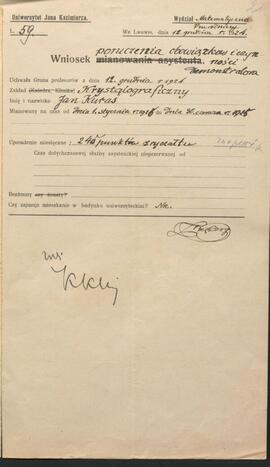 Uniwersytet Jana Kazimierza.
Wydział Matematyczno
Przyrodniczy
L. 59.
We Lwowie, dnia 12 grudnia r. 192
poruczenia obowiązków i czyn
Wniosek mianowania asystenta ności
demonstratora
Uchwała Grona profesorów z dnia 12. grudnia r. 192
Zakład (Katedra, Klinika) Krystalograficzny
Imię i nazwisko: Jan Kuras
Mianowany na czas od dnia 1. stycznia r. do dnia 31. marca r.
Uposażenie miesięczne: punktów z ryczałtu
Czas dotychczasowej służby asystenckiej nieprzerwanej od
Bezżenny czy żonaty?
Czy zajmuje mieszkanie w budynku uniwersyteckim? Nie.